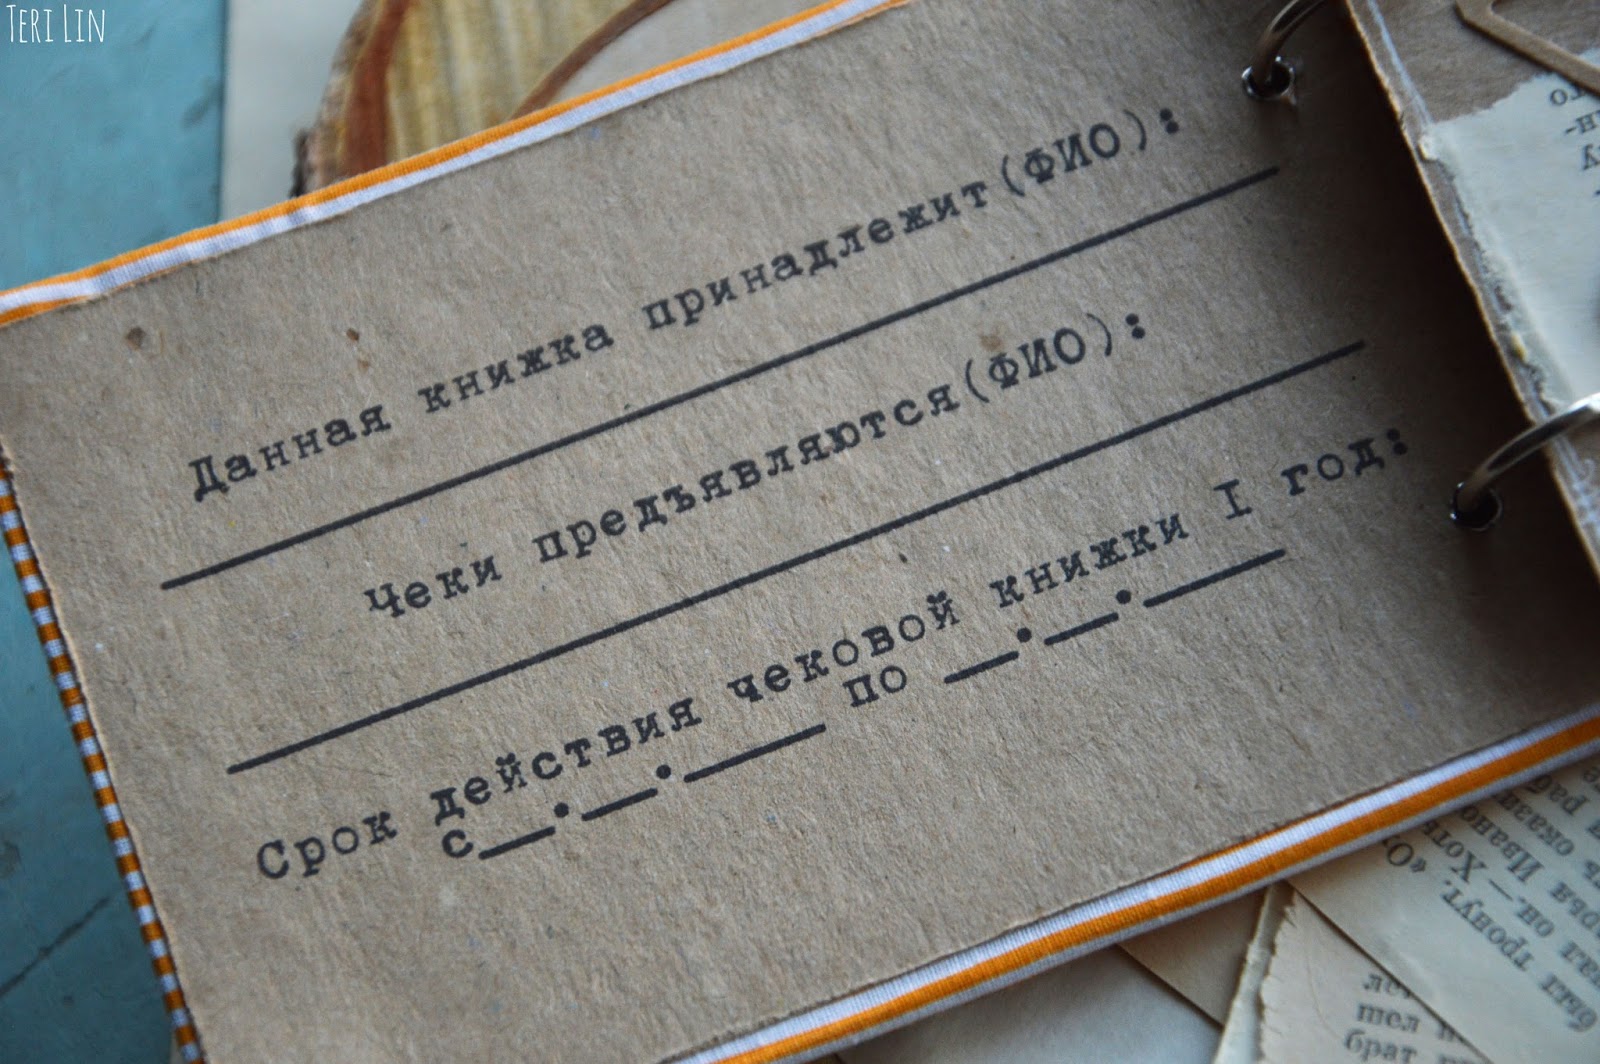 TERI LIN
Данная книжка принадлежит(ФИО):
Чеки предъявляются(ФИО):
Срок действия чековой книжки I год:
с__.__.____ по __.__.____